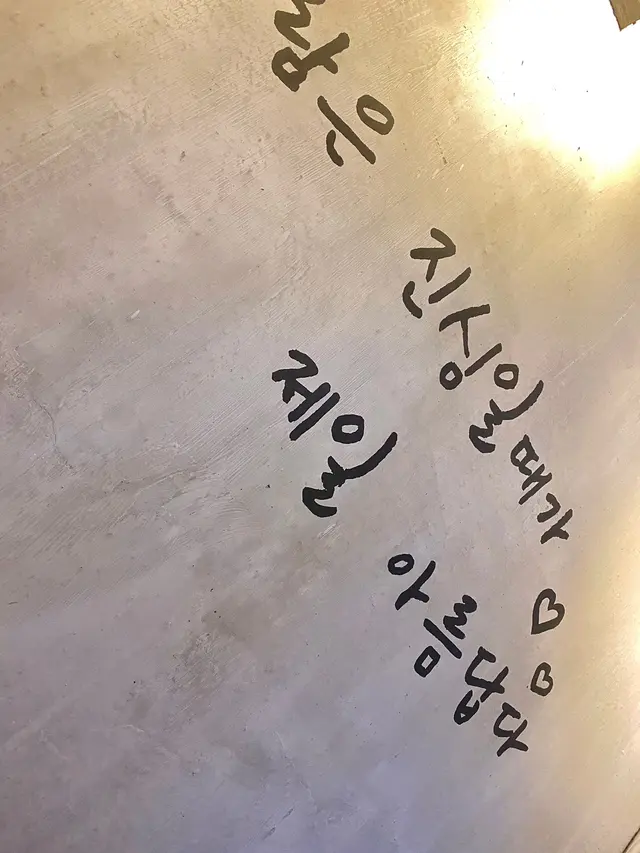 람은
진심일때가 ♡
제일 아름답다 ♡